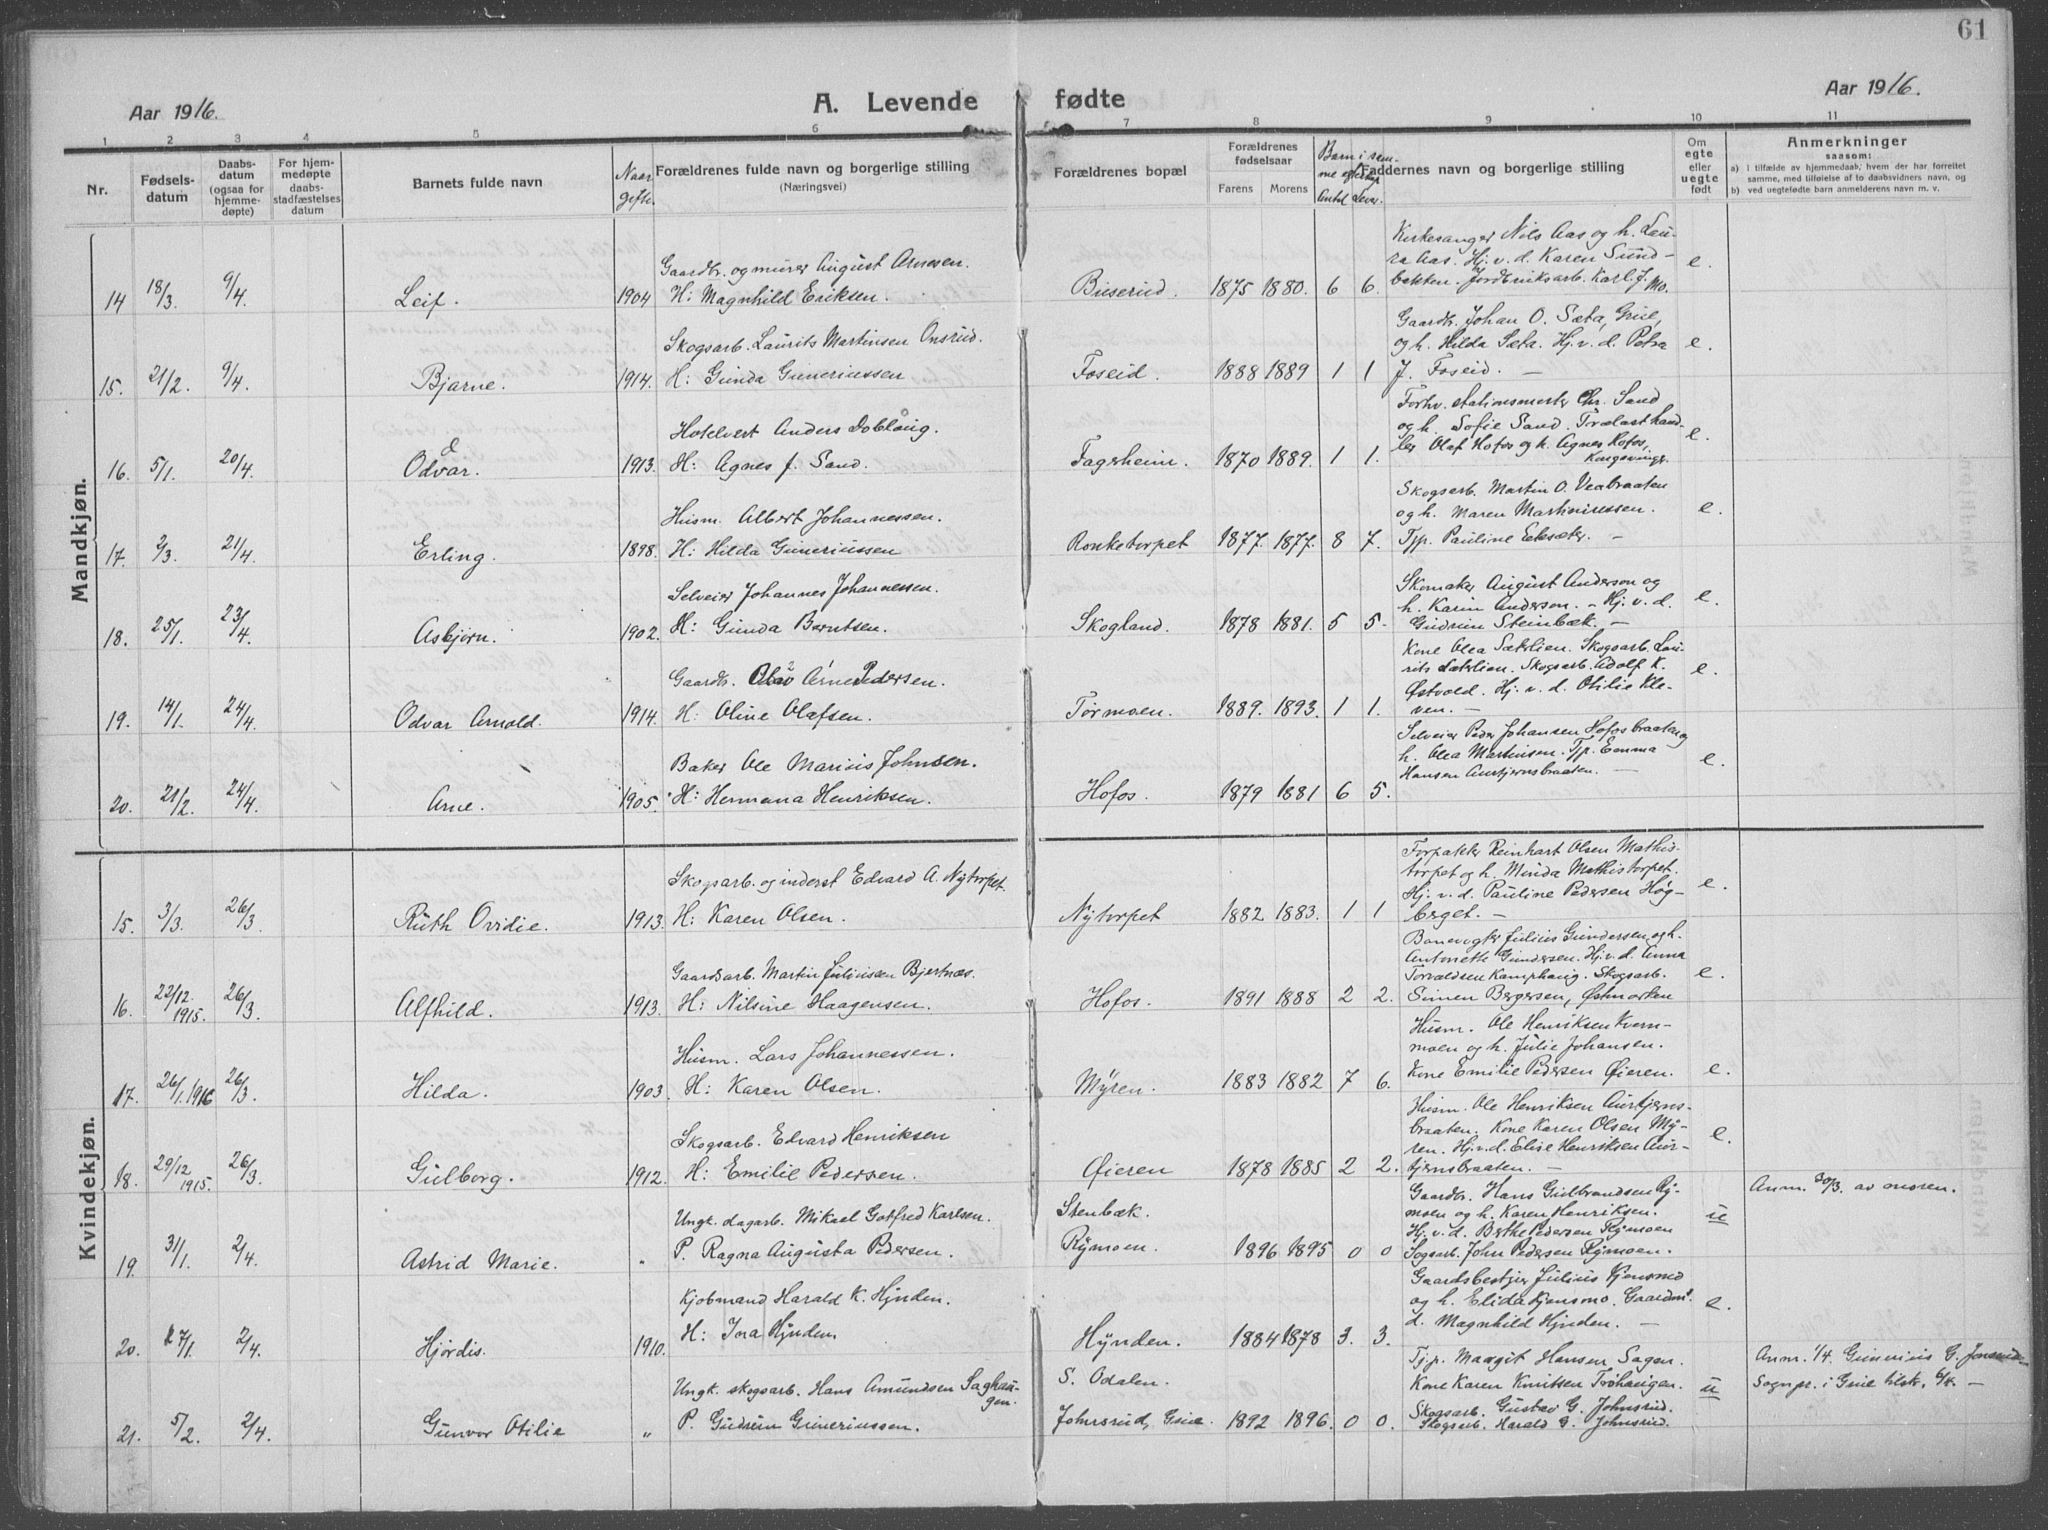 61
Aar 1916.
A. Levende fødte
Aar 1916.
1 2 3 4 5 6 7 8 9 10 11
Nr.
Fødselsdatum
Daabsdatum (ogsaa for hjemmedøpte)
For hjemmedøpte daabsstadfæstelses datum
Barnets fulde navn
Naar gifte.
Forældrenes fulde navn og borgerlige stilling
(Næringsvei)
Forældrenes bopæl
Forældrenes fødselsaar
Farens Morens
Barn i samme egteskap
Antal Lever.
Faddernes navn og borgerlige stilling
Om egte eller uegte født
Anmerkninger
saasom:
a) I tilfælde av hjemmedaab, hvem der har forrettet samme, med tilføielse af to daabsvidners navn, og
b) ved uegtefødte barn anmelderens navn m. v.
Mandkjøn.
Kirkesanger Nils Aas og h. Lau-
Gaardbr. og murer August Arnesen.
ra Aas. Hj. v. d. Karen Sund-
14 18/3. 9/4. Leif. 1904 H: Magnhild Eriksen. Buserud. 1875 1880. 6 6. bakken. Jordbruksarb. Karl J. Mo. e.
Gaardbr. Johan O. Sæta, Grue,
Skogsarb. Laurits Martinsen Onsrud.
og h. Hilda Sæta. Hj. v. d. Petra
15. 21/2. 9/4. Bjarne. 1914. H: Gunda Guneriussen Foseid. 1888 1889 1 1 J. Foseid. — e.
Forhv. stationsmester Chr. Sand
Hotelvert Anders Dobloug.
og h. Sofie Sand. Trælasthand-
ler Olaf Hofos og h. Agnes Hofos,
16. 5/1. 20/4. Odvar. 1913. H: Agnes f. Sand. Fagerheim. 1870 1889. 1 1. Kongsvinger. e.
Skogsarb. Martin O. Vexbraaten
Husm. Albert Johannessen.
og h. Maren Martiniussen.
17. 2/3. 21/4. Erling. 1898. H: Hilda Guneriussen Ronketorpet 1877. 1877. 8 7. Tjp. Pauline Eeksæter. — e.
Skomaker August Anderson og
Selveier Johannes Johannessen.
h. Karin Anderson. – Hj. v. d.
18. 25/1. 23/4. Asbjørn. 1902. H: Gunda Berntsen. Skogland. 1878 1881. 5 5. Gudrun Steinbæk. — e.
Kone Olea Sæterlien. Skogsarb. Lau-
rits Sæterlien. Skogsarb. Adolf K.
Gaardbr. Olav Arne Pedersen.
Østvold. Hj. v. d. Otilie Kle-
19. 14/1. 24/4. Odvar Arnold. 1914. H: Oline Olafsen. Tormoen. 1889. 1893. 1 1. ven. — e.
Selveier Peder Johansen Hofosbraaten og
Baker Ole Marius Johnsen.
h. Olea Martinsen. Tjp. Emma
Hansen Aurtjernsbraaten. —
20. 21/2. 24/4. Arne. 1905. H: Hermana Henriksen. Hofos. 1879 1881 6 5. e.
Kvindekjøn.
Forpakter Reinhart Olsen Mathis-
Skogsarb. og inderst Edvard A. Nytorpet.
torpet og h. Minda Mathistorpet.
Hj. v. d. Pauline Pedersen Høg-
15. 3/3. 26/3. Ruth Ovidie. 1913. H: Karen Olsen. Nytorpet 1882 1883. 1 1 berget. — e.
Banevogter Julius Gundersen og h.
Antonette Gundersen. Hj. v. d. Anna
Gaardsarb. Martin Juliussen Bjertnæs.
Torvaldsen Kamphaug. Skogsarb.
16. 22/12. 1915. 26/3. Alfhild. 1913. H: Nilsine Haagensen. Hofos. 1891 1888 2 2. Simen Bergersen, Østmarken e.
Husm. Ole Henriksen Kvern-
Husm. Lars Johannessen.
moen og h. Julie Johansen.
17. 26/1. 1916 26/3. Hilda. 1903. H: Karen Olsen. Myren. 1883 1882 7 6. Kone Emilie Pedersen Øieren. e.
Husm. Ole Henriksen Aurtjerns-
Skogsarb. Edvard Henriksen
braaten. Kone Karen Olsen My-
ren. Hj. v. d. Elise Henriksen Aur-
18. 29/12 1915. 26/3. Gulborg. 1912. H: Emilie Pedersen. Øieren 1878 1885 2 2. tjernsbraaten. — e.
Gaardbr. Hans Gulbrandsen Ry-
Anm. 30/3. av moren.
Ungk. dagarb. Mikael Gotfred Karlsen. Stenbæk.
moen og h. Karen Henriksen.
Hj. v. d. Berthe Pedersen Rymoen
19. 31/1. 2/4. Astrid Marie. „ P. Ragna Augusta Pedersen. Rymoen. 1896 1895 0 0 Sogsarb. John Pedersen Rymoen. u
Gaardsbestyr Julius Kjensmo
Kjøbmand Harald K. Hynden.
og h. Elida Kjensmo. Gaardm.
d. Magnhild Hynden. —
20. 27/1. 2/4. Hjørdis. 1910. H: Inra Hynden Hynden. 1884 1878 3. 3. e.
Tjp. Margit Hansen Sagen.
Anm. 1/4. Gunerius G. Jonsrud
Ungk. skogsarb. Hans Amundsen Saghaugen. S. Odalen.
Kone Karen Knutsen Trøhaugen.
Sognpr. i Grue tilsk. 6/4. —
Skogsarb. Gustav G. Johnsrud.
21. 5/2. 2/4. Gunvor Otilie „ P. Gudrun Guneriussen. Johnsrud, Grue. 1892 1896. 0 0. Skogsarb. Harald G. Johnsrud. u